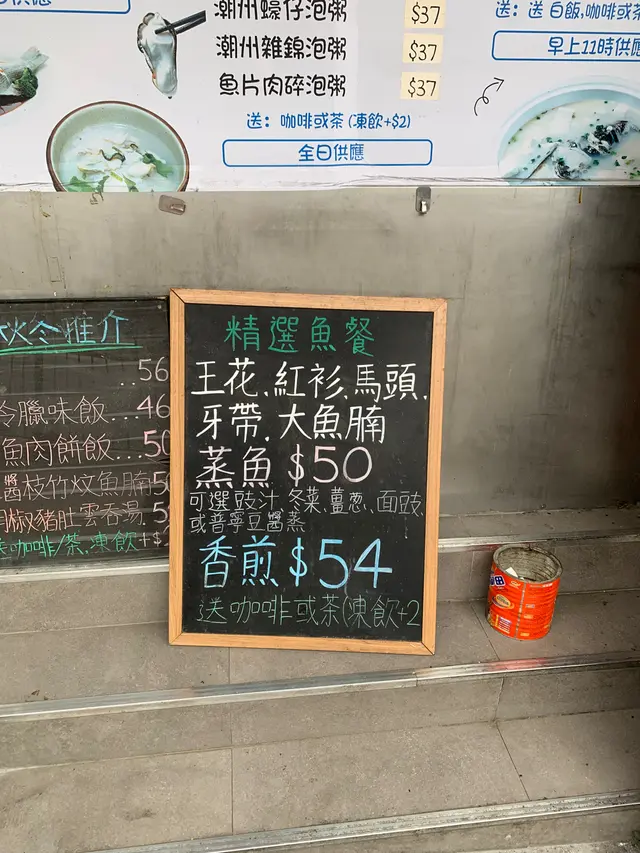 供應
潮州蠔仔泡粥 $37
潮州雜錦泡粥 $37
魚片肉碎泡粥 $37
送：咖啡或茶(凍飲+$2)
全日供應
送：送白飯,咖啡或茶
早上11時供應
秋冬推介
..56
臘味飯...46
魚肉餅飯...50
醬枝竹炆魚腩5
胡椒豬肚雲吞湯.5
送咖啡/茶,凍飲+$
精選魚餐
王花.紅衫.馬頭.
牙帶.大魚腩
蒸魚 $50
可選豉汁.冬菜.薑葱.面豉.
或普寧豆醬蒸
香煎 $54
送咖啡或茶(凍飲+2